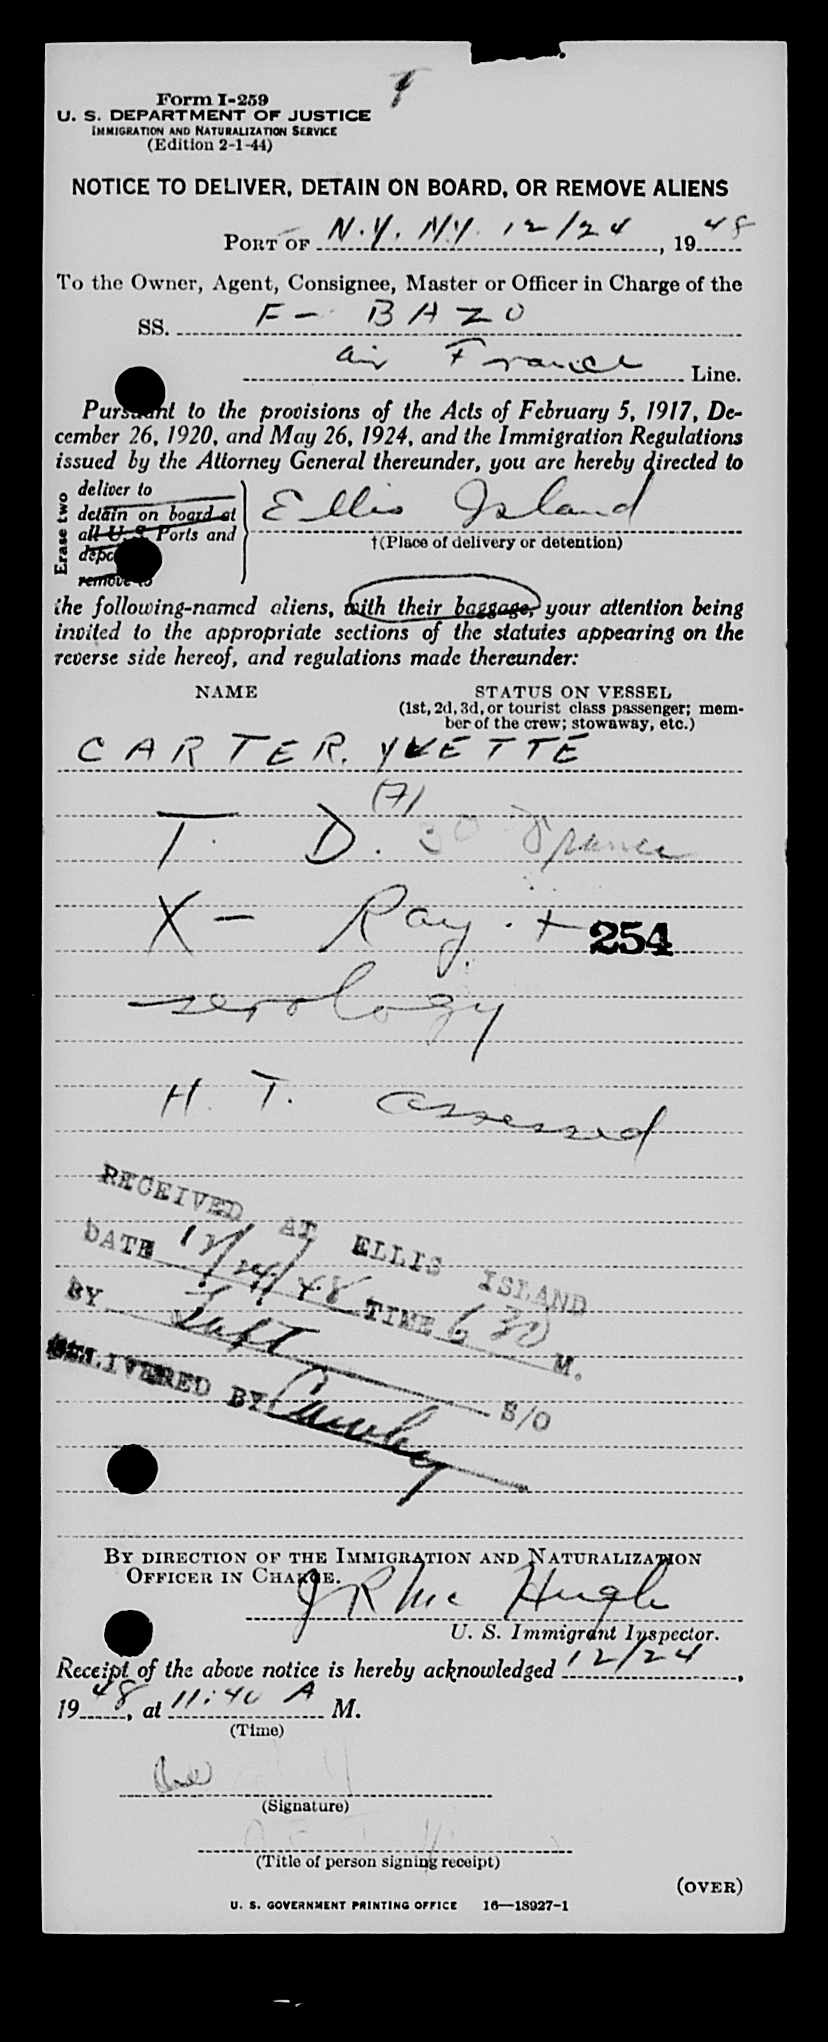 Form I-259
U. S. DEPARTMENT OF JUSTICE
IMMIGRATION AND NATURALIZATION SERVICE
(Edition 2-1-44)
NOTICE TO DELIVER, DETAIN ON BOARD, OR REMOVE ALIENS
PORT OF N.Y. N.Y. 12/24, 1948
To the Owner, Agent, Consignee, Master or Officer in Charge of the
SS. F-BAZO
Air France Line.
Pursuant to the provisions of the Acts of February 5, 1917, De-
cember 26, 1920, and May 26, 1924, and the Immigration Regulations
issued by the Attorney General thereunder, you are hereby directed to
Erase two
deliver to
detain on board at
all U. S. Ports and
remove to
Ellis Island
†(Place of delivery or detention)
the following-named aliens, with their baggage, your attention being
invited to the appropriate sections of the statutes appearing on the
reverse side hereof, and regulations made thereunder:
NAME STATUS ON VESSEL
(1st, 2d, 3d, or tourist class passenger; mem-
ber of the crew; stowaway, etc.)
CARTER, YVETTE
(7)
T. D. 30 France
X-Ray. +
254
serology
H. T. assessed
RECEIVED AT ELLIS ISLAND
DATE 12/24/48 TIME 6 30 M.
BY Taft S/O
DELIVERED BY
BY DIRECTION OF THE IMMIGRATION AND NATURALIZATION
OFFICER IN CHARGE.
J R McHugh
U. S. Immigrant Inspector.
Receipt of the above notice is hereby acknowledged 12/24,
1948, at 11:40 A M.
(Time)
(Signature)
(Title of person signing receipt)
(OVER)
U. S. GOVERNMENT PRINTING OFFICE 16—18927-1